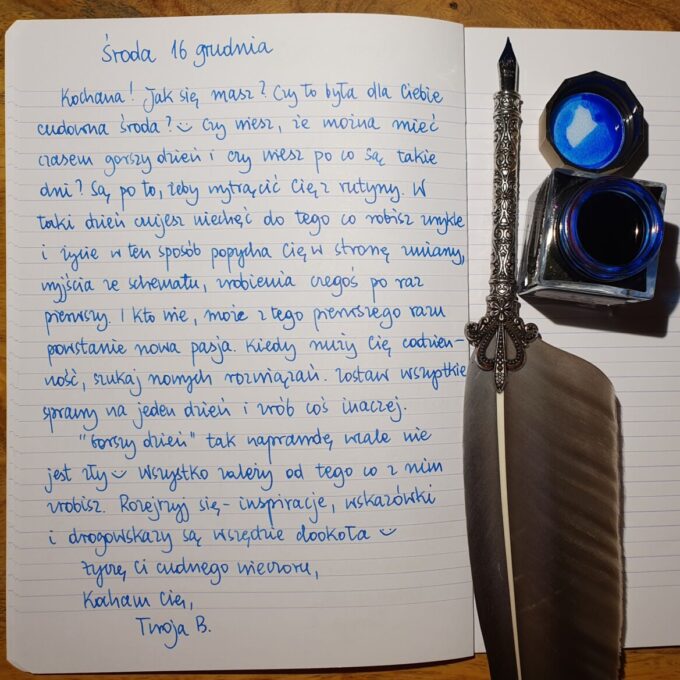 Środa 16 grudnia
Kochana! Jak się masz? Czy to była dla Ciebie
cudowna środa? ☺ Czy wiesz, że można mieć
czasem gorszy dzień i czy wiesz po co są takie
dni? Są po to, żeby wytrącić Cię z rutyny. W
taki dzień czujesz niechęć do tego co robisz zwykle
i życie w ten sposób popycha Cię w stronę zmiany,
wyjścia ze schematu, zrobienia czegoś po raz
pierwszy. I kto wie, może z tego pierwszego razu
powstanie nowa pasja. Kiedy nuży Cię codzien-
ność, szukaj nowych rozwiązań. Zostaw wszystkie
sprawy na jeden dzień i zrób coś inaczej.
"Gorszy dzień" tak naprawdę wcale nie
jest zły ☺ Wszystko zależy od tego co z nim
zrobisz. Rozejrzyj się - inspiracje, wskazówki
i drogowskazy są wszędzie dookoła ☺
Życzę Ci cudnego wieczoru,
Kocham Cię,
Twoja B.